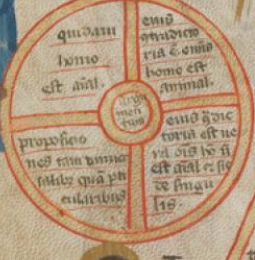 quidam
homo
est aīal.
eius
ɔtradicto
ria ē. omīs
homo est
animal.
argu
men
tum
propositio
nes tam uniuer
salibꝫ quā par
ticularibus
eius ɔ̄dic
toria est ue
ra ois ho ñ
est aīal ⁊ sic
de singu
lis.